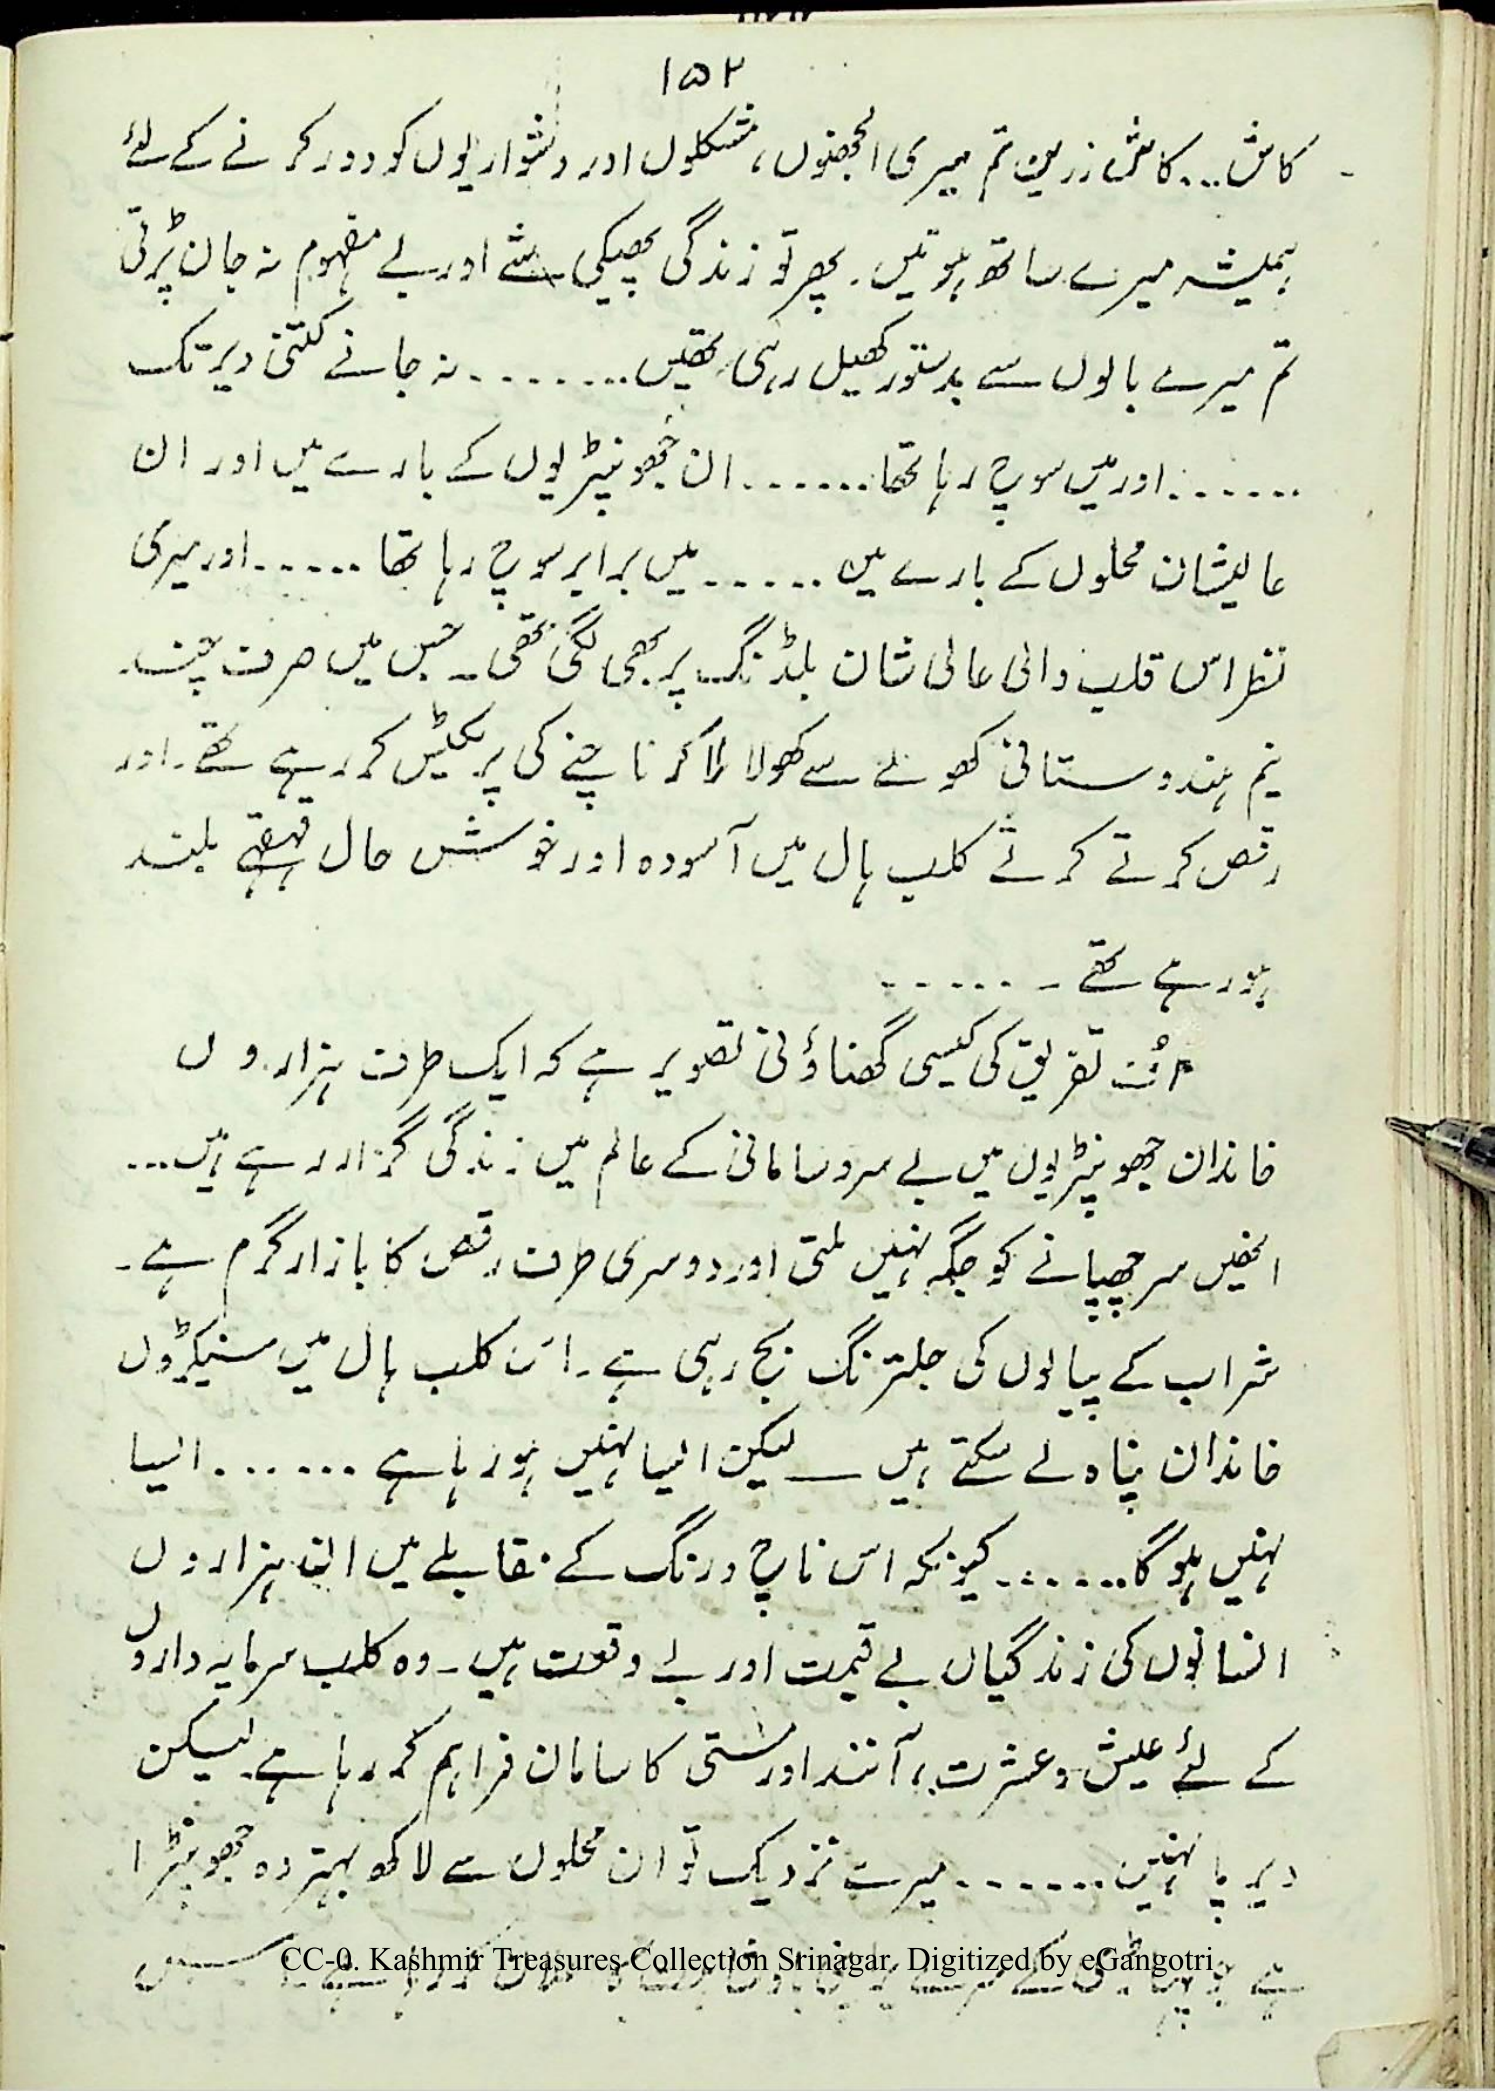 ۱۵۲
کاش... کاش زرین تم میری الجھنوں، مشکلوں اور دشواریوں کو دور کرنے کے لئے
ہمیشہ میرے ساتھ ہوتیں۔ پھر تو زندگی پھیکی شے اور بے مفہوم نہ جان پڑتی
تم میرے بالوں سے بدستور کھیل رہی تھیں........ نہ جانے کتنی دیر تک
....... اور میں سوچ رہا تھا....... ان جھونپڑیوں کے بارے میں اور ان
عالیشان محلوں کے بارے میں ...... میں برابر سوچ رہا تھا ...... اور میری
نظر اس قلب والی عالی شان بلڈنگ پر بھی لگی تھی۔ جس میں صرف چند
نیم ہندوستانی کھونے سے کھولا ملا کر ناچنے کی پریکٹیس کر رہے تھے۔ اور
رقص کرتے کرتے کلب ہال میں آسودہ اور خوش حال قہقہے بلند
ہو رہے تھے ۔ ......
اُف تفریق کی کیسی گھناؤنی تصویر ہے کہ ایک طرف ہزاروں
خاندان جھونپڑیوں میں بے سروسامانی کے عالم میں زندگی گزار رہے ہیں...
انھیں سر چھپانے کو جگہ نہیں ملتی اور دوسری طرف رقص کا بازار گرم ہے۔
شراب کے پیالوں کی جلترنگ بج رہی ہے۔ اس کلب ہال میں سینکڑوں
خاندان پناہ لے سکتے ہیں ــ لیکن ایسا نہیں ہو رہا ہے ....... ایسا
نہیں ہوگا....... کیونکہ اس ناچ و رنگ کے مقابلے میں ان ہزاروں
انسانوں کی زندگیاں بے قیمت اور بے وقعت ہیں۔ وہ کلب سرمایہ داروں
کے لئے عیش و عشرت، آنند اور مستی کا سامان فراہم کر رہا ہے۔ لیکن
دیرپا نہیں....... میرے نزدیک تو ان محلوں سے لاکھ بہتر وہ جھونپڑا
CC-0. Kashmir Treasures Collection Srinagar. Digitized by eGangotri